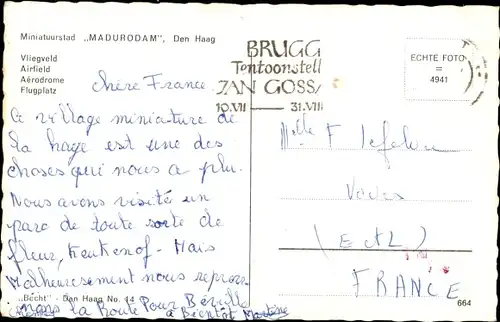 Miniatuurstad „MADURODAM”, Den Haag
Vliegveld
Airfield
Aérodrome
Flugplatz
chère France.
Ce village miniature de
la haye est une des
choses qui nous a plu.
Nous avons visité un
parc de toute sorte de
fleur, Keukenof - Mais
Malheureusement nous repren-
„Bécht” - Den Haag No. 44
la Route Pour
a Bientôt Martine
BRUGG
Tentoonstell
JAN GOSS
10.VII — 31.VIII
ECHTE FOTO
=
4941
Melle F
Voves
(E et L)
FRANCE
664